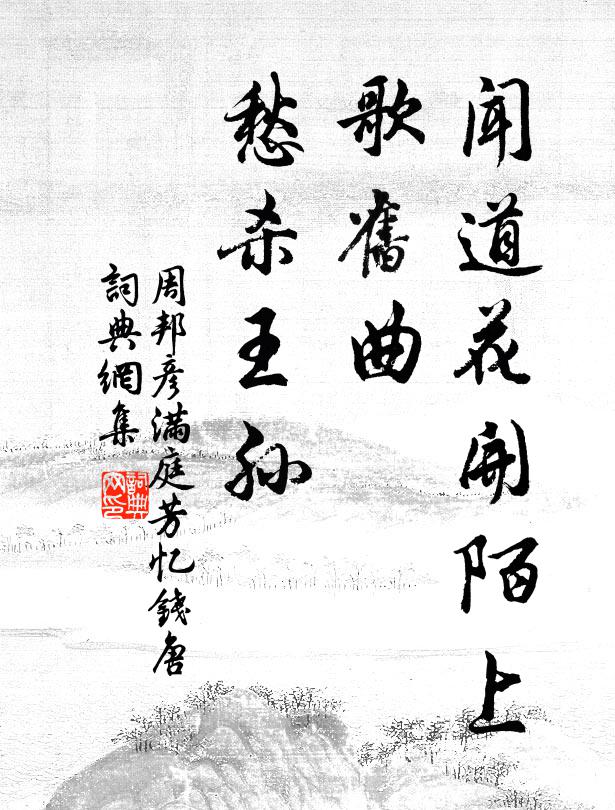 闻道花开陌上
歌舊曲
愁杀王孙
周邦彦满庭芳忆錢唐
詞典網集
詞典
网印